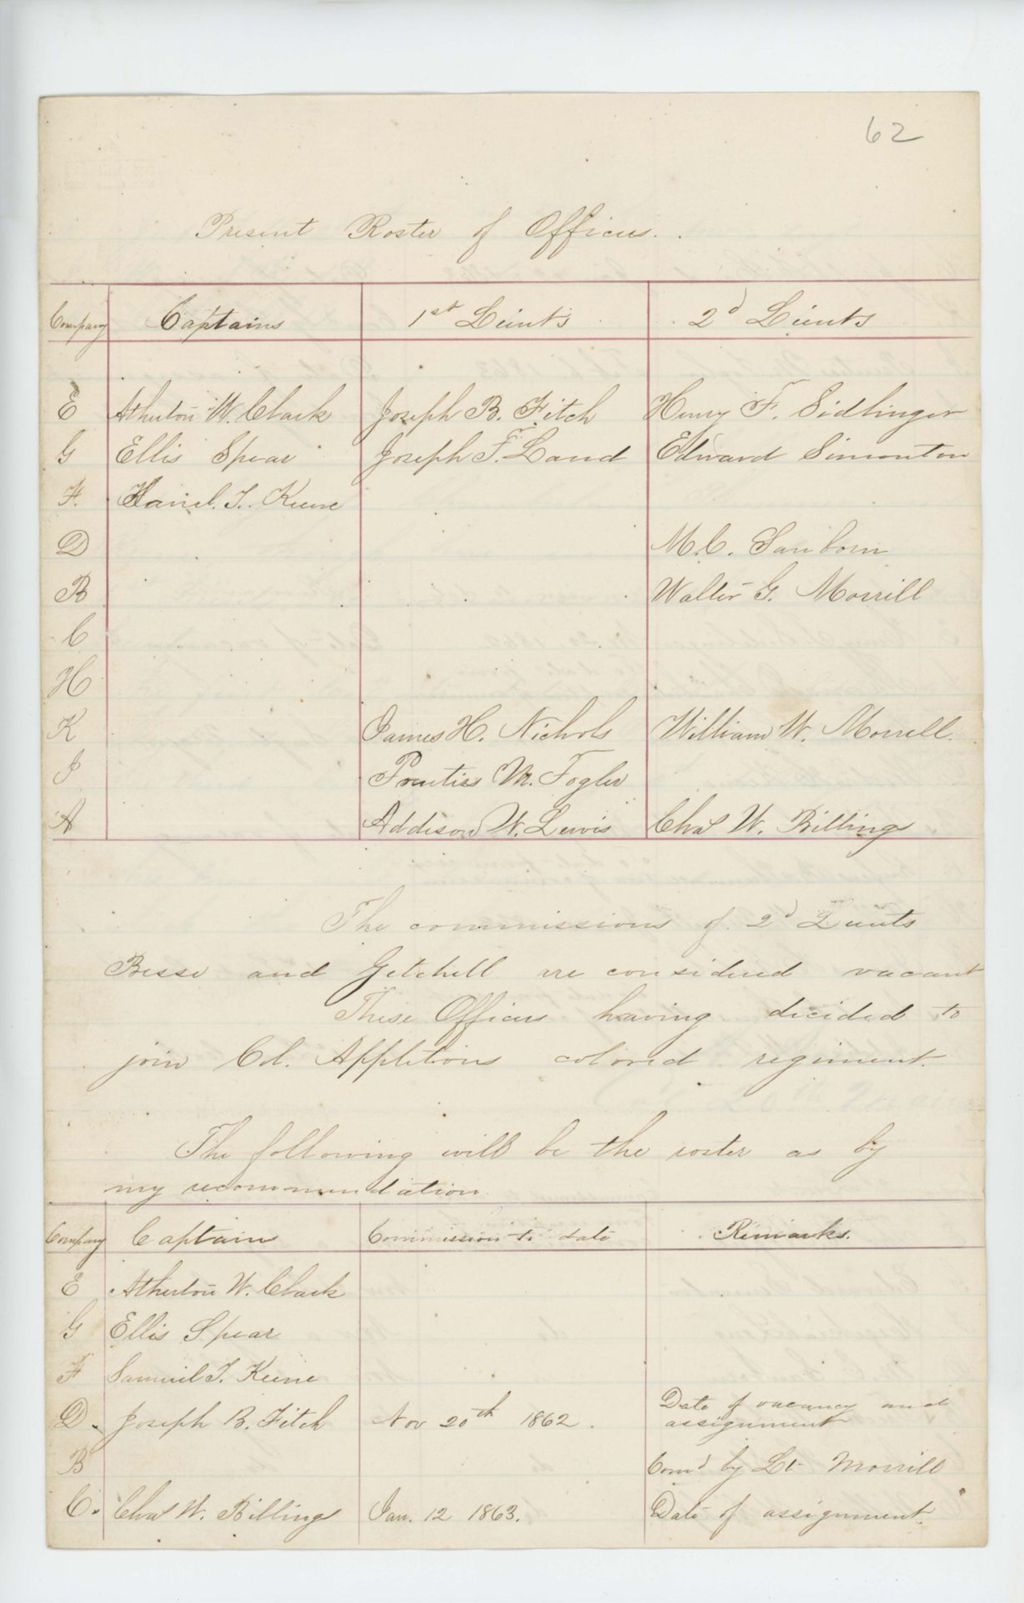 62
Present Roster of Officers.
Company Captains 1st Leiuts 2d Leiuts
E Atherton W. Clark Joseph B. Fitch Henry F. Sidlinger
G Ellis Spear Joseph F. Land Edward Simonton
F. Samel. T. Keene
D M.C. Sanborn
B Walter G. Morrill
C
H
K James H. Nichols William W. Morrell.
I Prentiss M. Fogler
A Addison W. Lewis Chas W. Billings
The commissions of 2d Leiuts
Besse and Getchell are considered vacant
These Officers having decided to
join Col. Appletons colored regiment.
The following will be the roster as by
my recommendation.
Company Captain Commission to date Remarks.
E Atherton W. Clark
G Ellis Spear
F Samuel T. Keene
D. Joseph B. Fitch Nov 20th 1862. Date of vacancy and
assignment
B Com'd by Lt Morrill
C. Chas W. Billings Jan. 12 1863. Date of assignment.